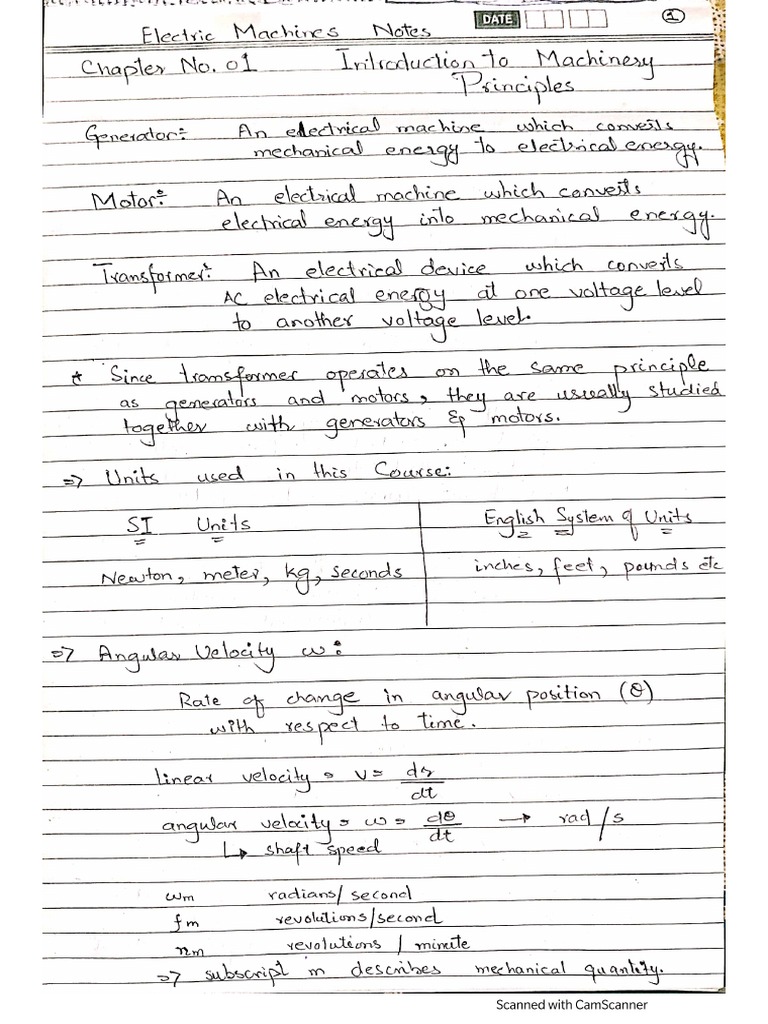 DATE
1
Electric Machines Notes
Chapter No. 01 Introduction to Machinery
Principles
Generator:- An electrical machine which converts
mechanical energy to electrical energy.
Motor:- An electrical machine which converts
electrical energy into mechanical energy.
Transformer:- An electrical device which converts
AC electrical energy at one voltage level
to another voltage level.
* Since transformer operates on the same principle
as generators and motors, they are usually studied
together with generators & motors.
=> Units used in this Course:
SI Units English System of Units
Newton, meter, kg, seconds inches, feet, pounds etc
=> Angular Velocity ω:
Rate of change in angular position (θ)
with respect to time.
linear velocity = v = dr/dt
angular velocity = ω = dθ/dt → rad/s
↳ shaft speed
ωm radians/second
fm revolutions/second
nm revolutions/minute
=> subscript m describes mechanical quantity.
Scanned with CamScanner